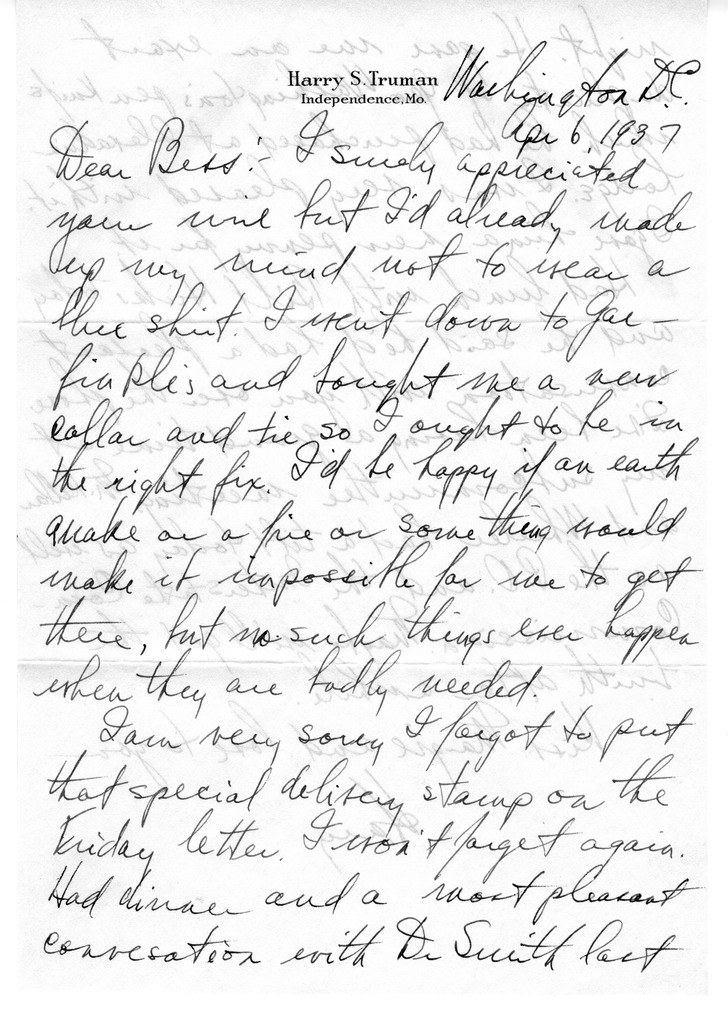 Harry S. Truman
Independence, Mo.
Washington D.C.
Apr 6, 1937
Dear Bess:- I surely appreciated
your wire but I'd already made
up my mind not to wear a
blue shirt. I went down to Gar-
finkle's and bought me a new
collar and tie so I ought to be in
the right fix. I'd be happy if an earth
quake or a fire or something would
make it impossible for me to get
there, but no such things ever happen
when they are badly needed.
I am very sorry I forgot to put
that special delivery stamp on the
Friday letter. I won't forget again.
Had dinner and a most pleasant
convesation with Dr Smith last